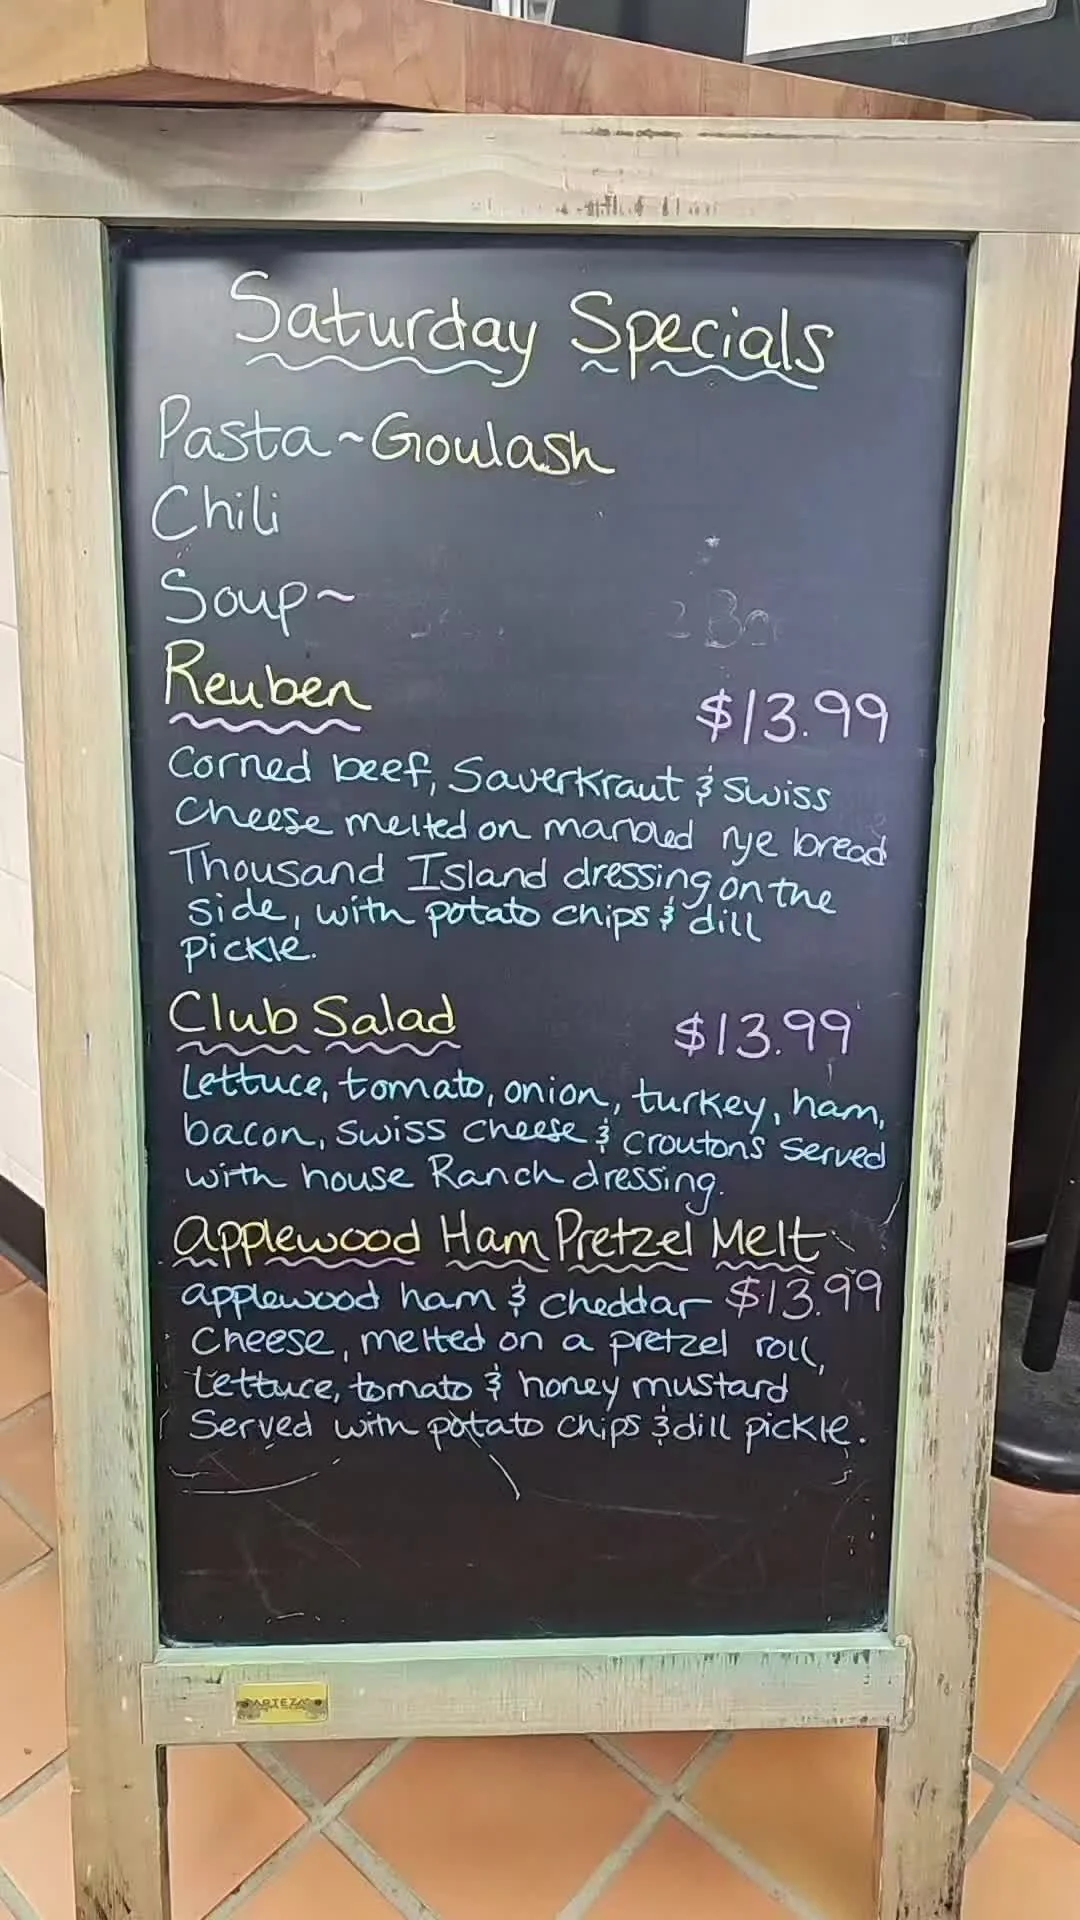 Saturday Specials
Pasta ~ Goulash
Chili
Soup ~
Reuben $13.99
Corned beef, Sauerkraut & Swiss
Cheese melted on marbled rye bread
Thousand Island dressing on the
side, with potato chips & dill
pickle.
Club Salad $13.99
Lettuce, tomato, onion, turkey, ham,
bacon, swiss cheese & croutons served
with house Ranch dressing.
Applewood Ham Pretzel Melt
applewood ham & cheddar $13.99
Cheese, melted on a pretzel roll,
Lettuce, tomato & honey mustard
Served with potato chips & dill pickle.
ARTEZA